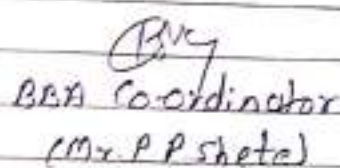 BBA Co-ordinator
(Mr. P P Shete)